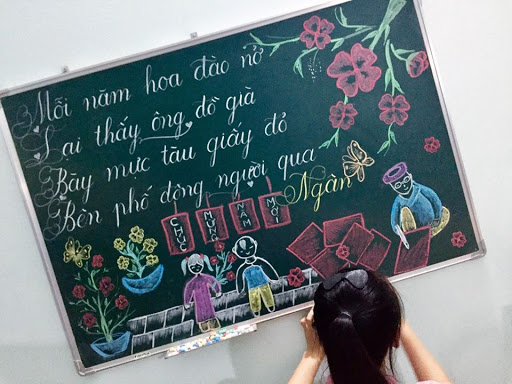 Mỗi năm hoa đào nở
Lại thấy ông đồ già
Bày mực tàu giấy đỏ
Bên phố đông người qua
Ngàn
CHÚC MỪNG NĂM MỚI